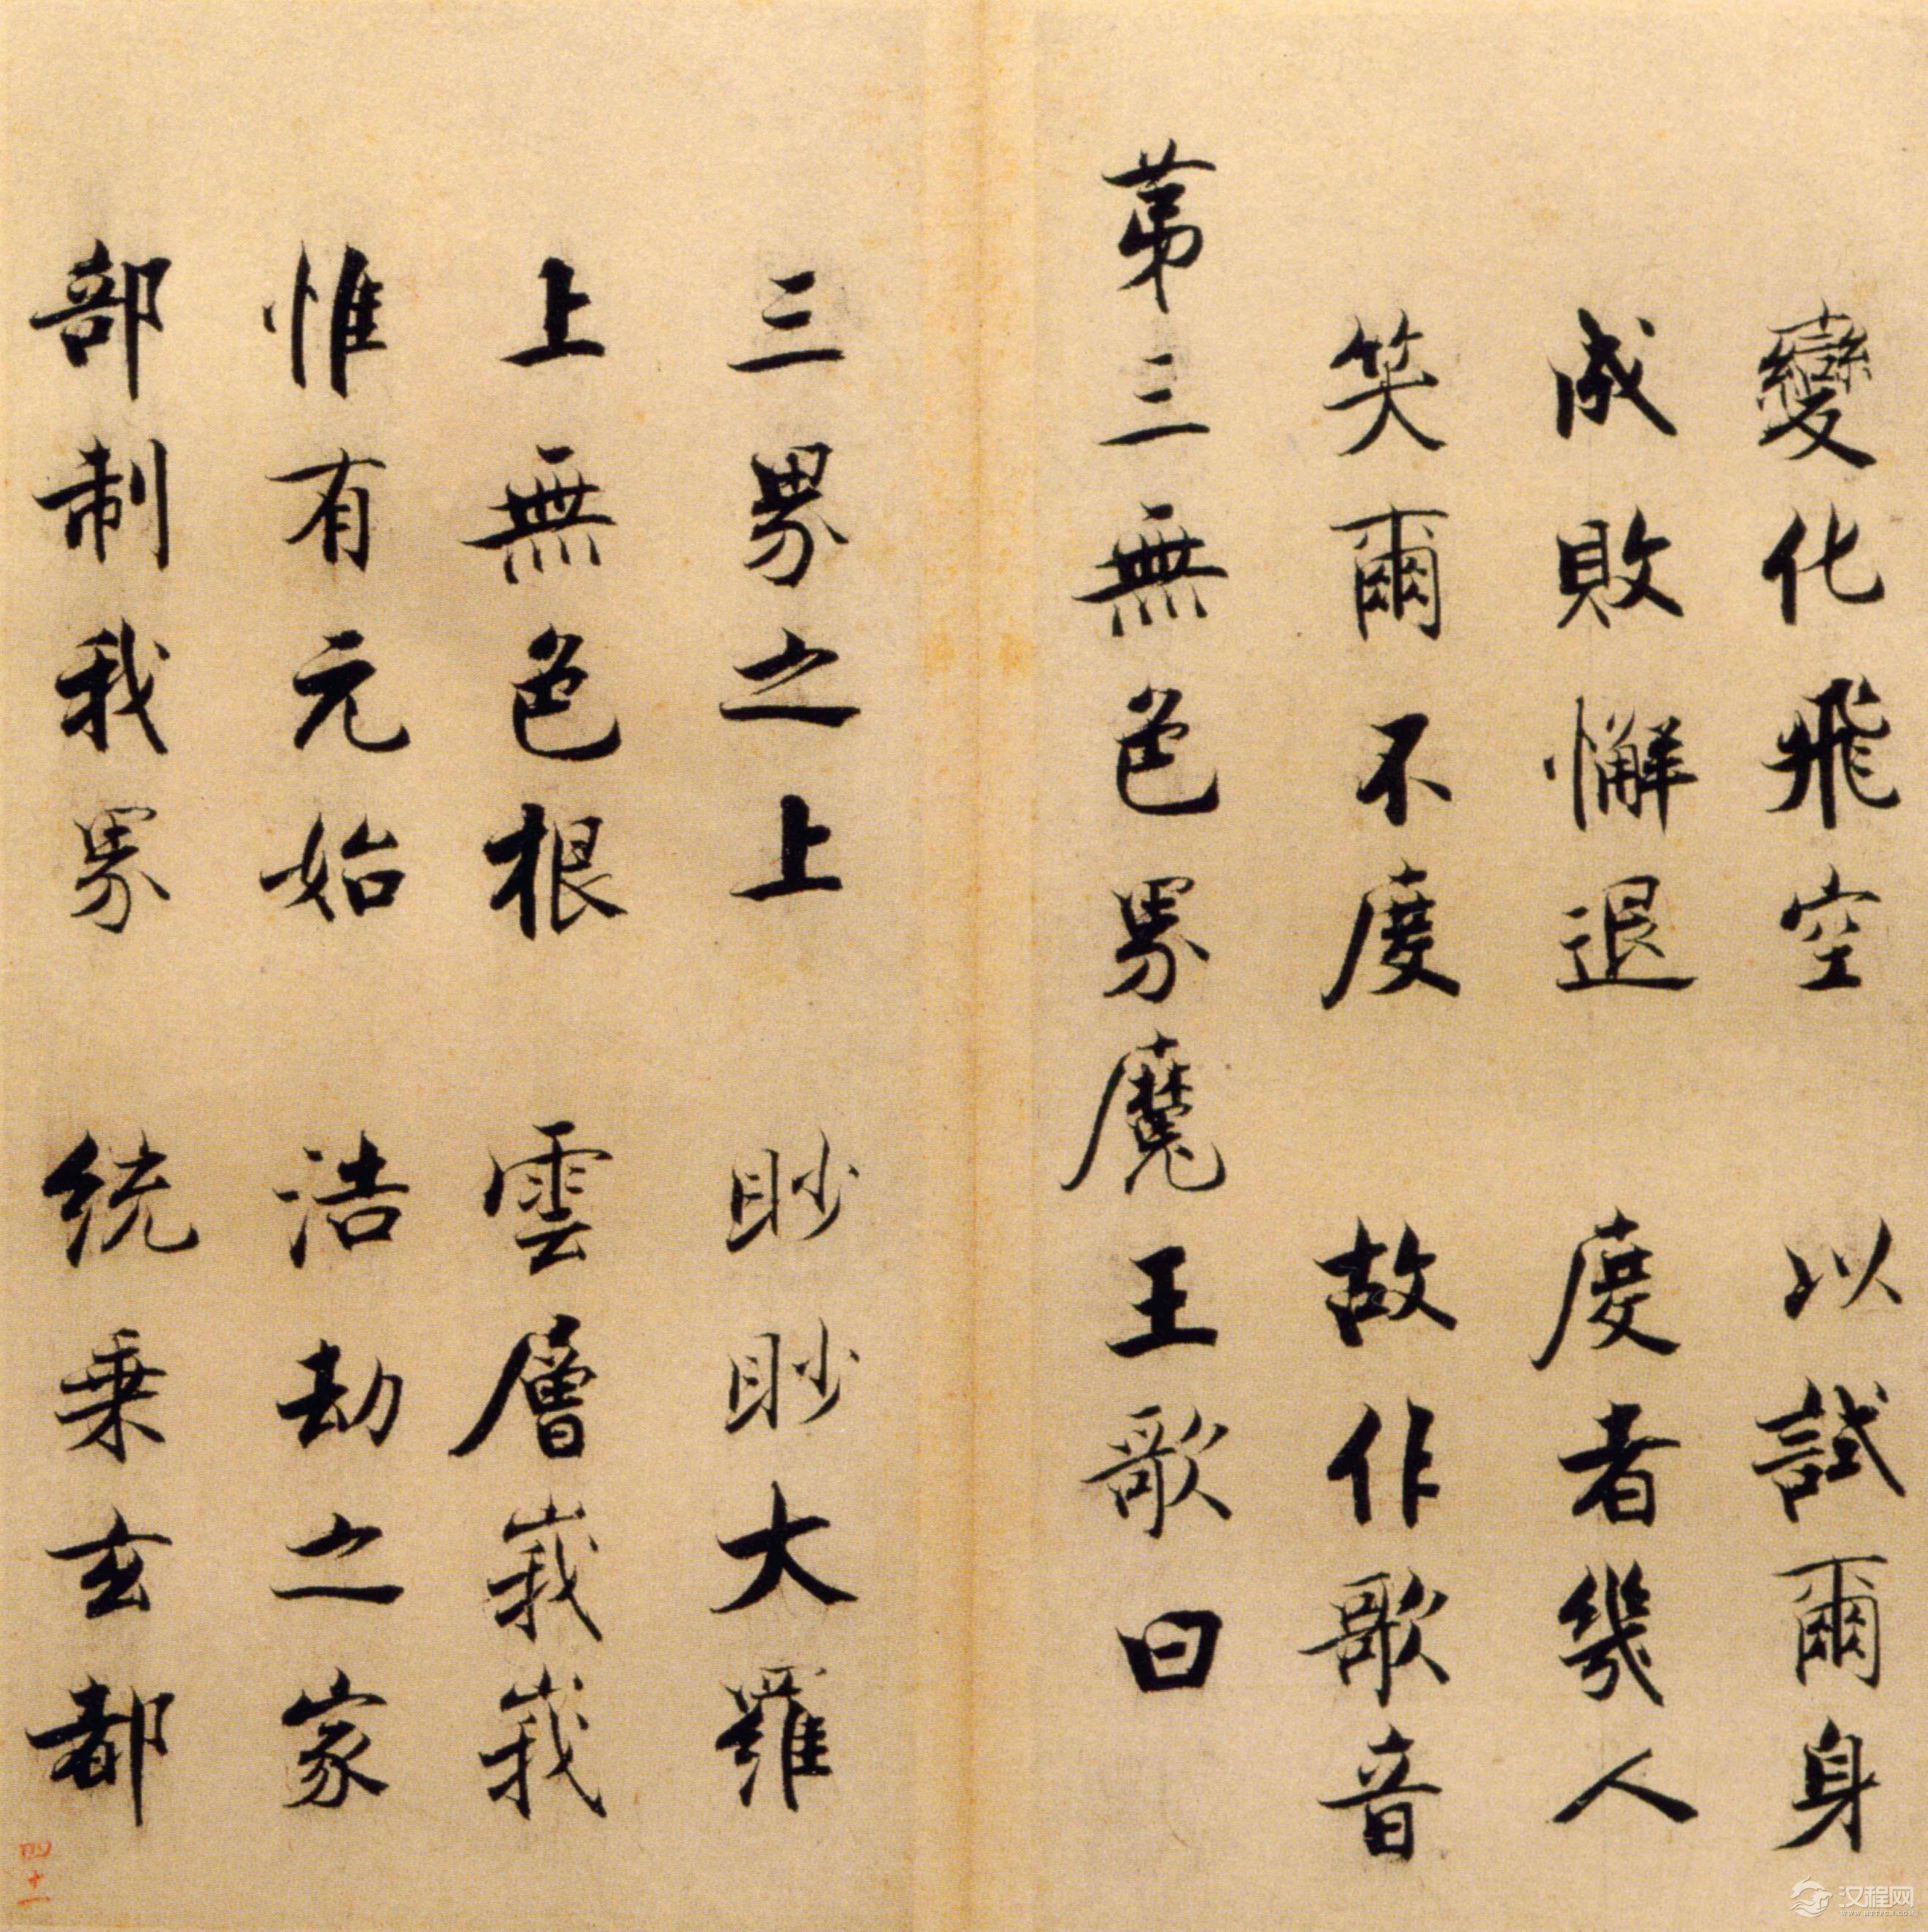 變化飛空　以試爾身
成敗懈退　度者幾人
笑爾不度　故作歌音
第三無色界魔王歌曰
三界之上　眇眇大羅
上無色根　雲層峩峩
惟有元始　浩劫之家
部制我界　統乗玄都
四十一
汉程网
WWW.HTTPCN.COM